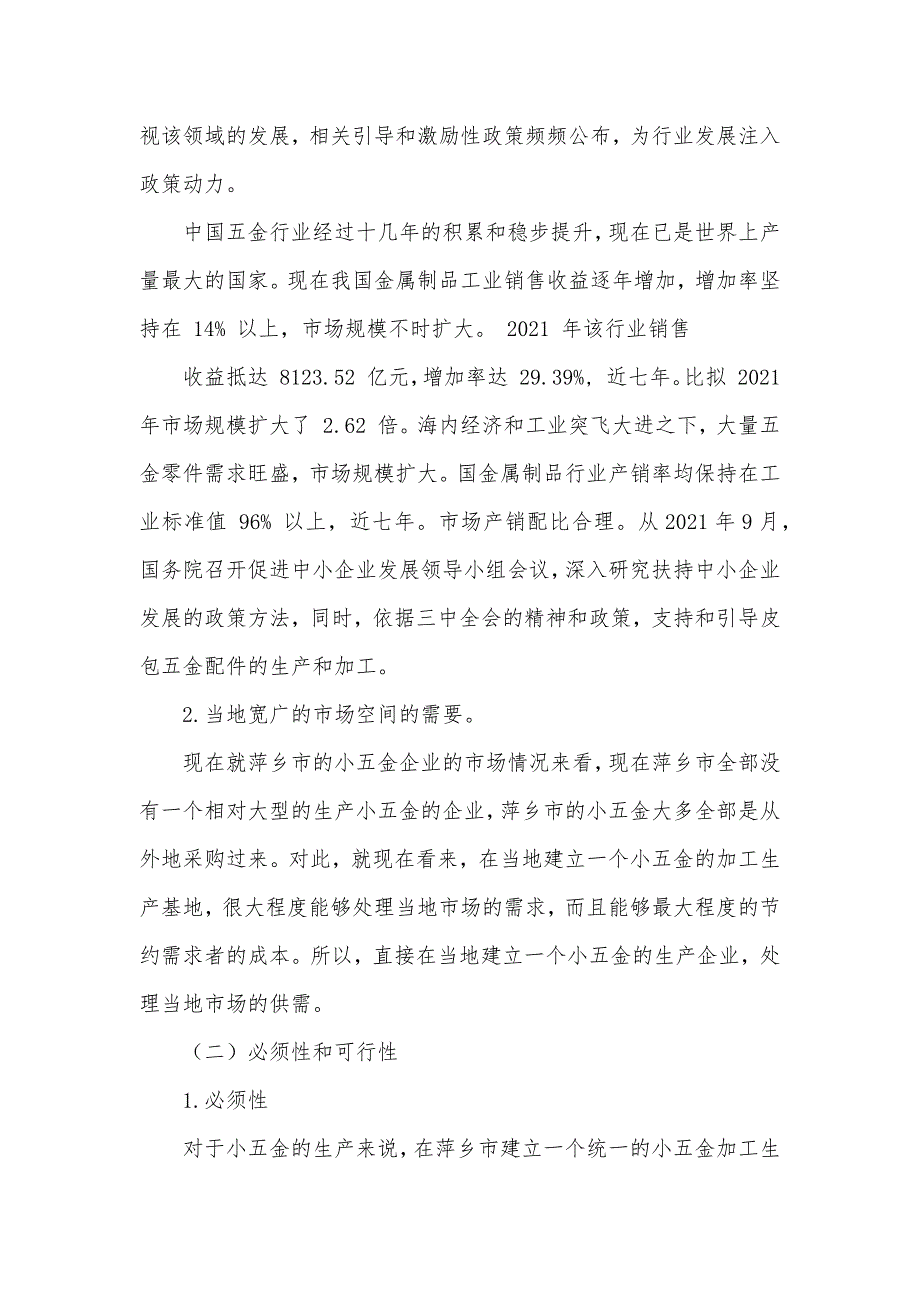 视该领域的发展，相关引导和激励性政策频频公布，为行业发展注入
政策动力。
中国五金行业经过十几年的积累和稳步提升，现在已是世界上产
量最大的国家。现在我国金属制品工业销售收益逐年增加，增加率坚
持在 14% 以上，市场规模不时扩大。 2021 年该行业销售
收益抵达 8123.52 亿元，增加率达 29.39%, 近七年。比拟 2021
年市场规模扩大了 2.62 倍。海内经济和工业突飞大进之下，大量五
金零件需求旺盛，市场规模扩大。国金属制品行业产销率均保持在工
业标准值 96% 以上，近七年。市场产销配比合理。从2021年9月，
国务院召开促进中小企业发展领导小组会议，深入研究扶持中小企业
发展的政策方法，同时，依据三中全会的精神和政策，支持和引导皮
包五金配件的生产和加工。
2.当地宽广的市场空间的需要。
现在就萍乡市的小五金企业的市场情况来看，现在萍乡市全部没
有一个相对大型的生产小五金的企业，萍乡市的小五金大多全部是从
外地采购过来。对此，就现在看来，在当地建立一个小五金的加工生
产基地，很大程度能够处理当地市场的需求，而且能够最大程度的节
约需求者的成本。所以，直接在当地建立一个小五金的生产企业，处
理当地市场的供需。
（二）必须性和可行性
1.必须性
对于小五金的生产来说，在萍乡市建立一个统一的小五金加工生